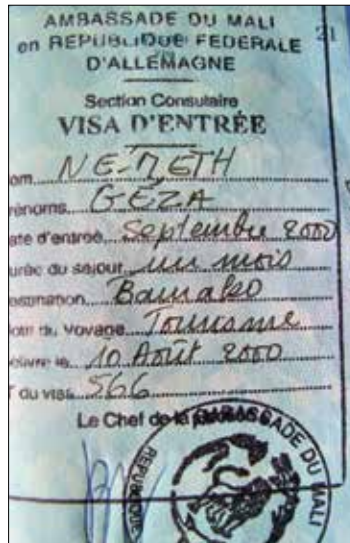 AMBASSADE DU MALI
en REPUBLIQUE FEDERALE 21
D'ALLEMAGNE
Section Consulaire
VISA D'ENTRÉE
om NEMETH
rénoms GÉZA
ate d'entrée Septembre 2000
urée du séjour un mois
estination Bamako
otif du Voyage Tourisme
élivré le 10 Août 2000
° du visa 566
Le Chef de la
AMBASSADE DU MALI
REPUBLIQUE